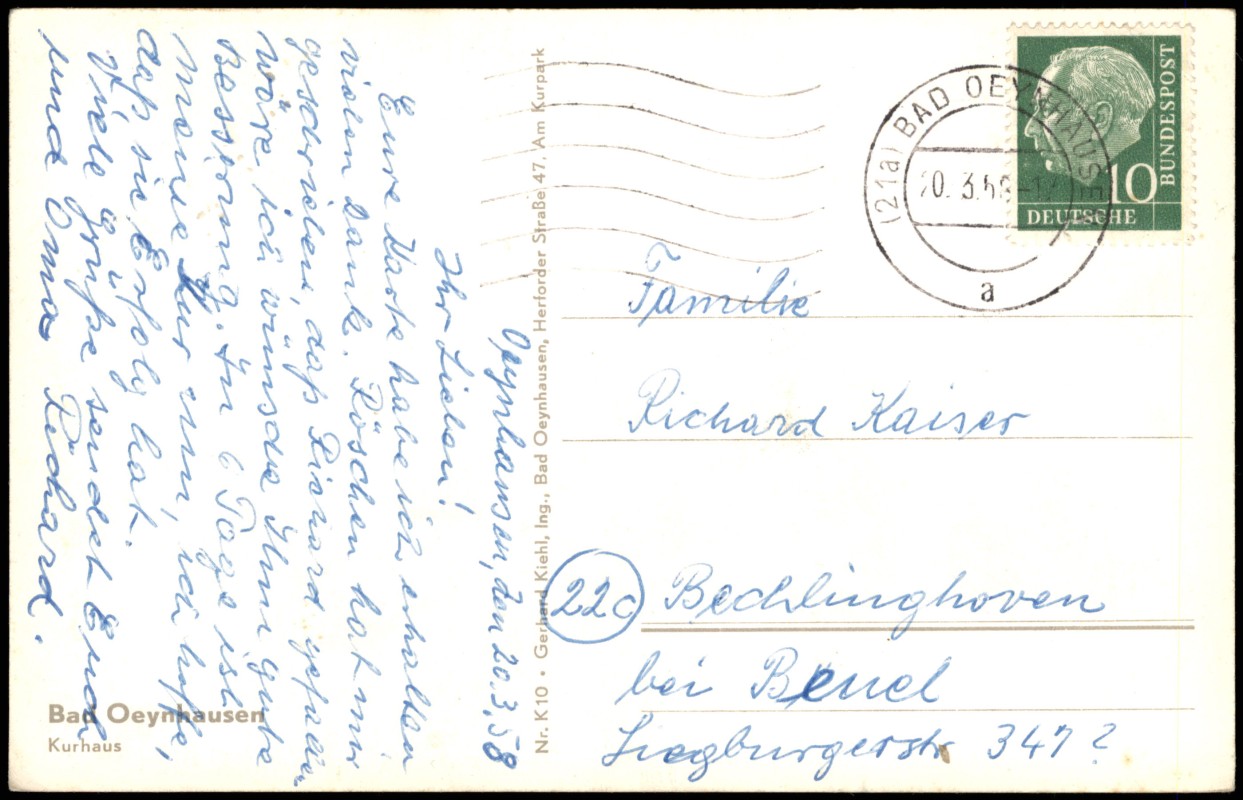 Oeynhausen, den 20.3.58
Ihr Lieben!
Eure Karte habe ich erhalten
vielen Dank. Röschen hat mir
geschrieben, daß Richard gefallen
wäre ich wünsche Ihm gute
Besserung. In 6 Tage ist
meine Kur um, ich hoffe,
daß sie Erfolg hat.
Viele Grüße sendet Euch
und Oma Richard.
Bad Oeynhausen
Kurhaus
Nr. K10 • Gerhard Kiehl, Ing., Bad Oeynhausen, Herforder Straße 47. Am Kurpark
(21a) BAD OEYNHAUSEN
20. 3.58
a
10
DEUTSCHE
BUNDESPOST
Familie
Richard Kaiser
22c Bechlinghoven
bei Beuel
Siegburgerstr 347?